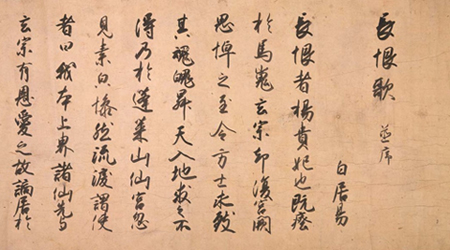 長恨歌 並序
白居易
長恨者楊貴妃也既瘞
於馬嵬玄宗却復宮闕
思悼之至令方士求致
其魂魄昇天入地求之不
得乃於蓬萊山仙宮忽
見素皃慘然流涙謂使
者曰我本上界諸仙先与
玄宗有恩愛之故謫居於